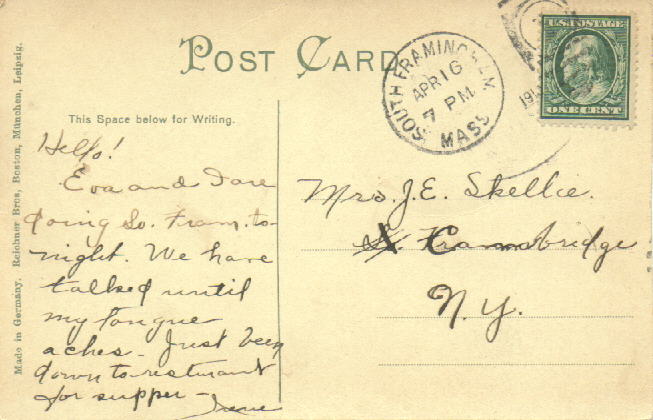 POST CARD
SOUTH FRAMINGHAM
APR 16
7 PM
MASS
U.S. POSTAGE
ONE CENT
Made in Germany, Reichner Bros, Boston, München, Leipzig.
This Space below for Writing.
Hello!
Eva and I are
going So. Fram. to-
night. We have
talked until
my tongue
aches - Just been
down to resturant
for supper -
Irene
Mrs. J.E. Skellie.
Cambridge
N.Y.